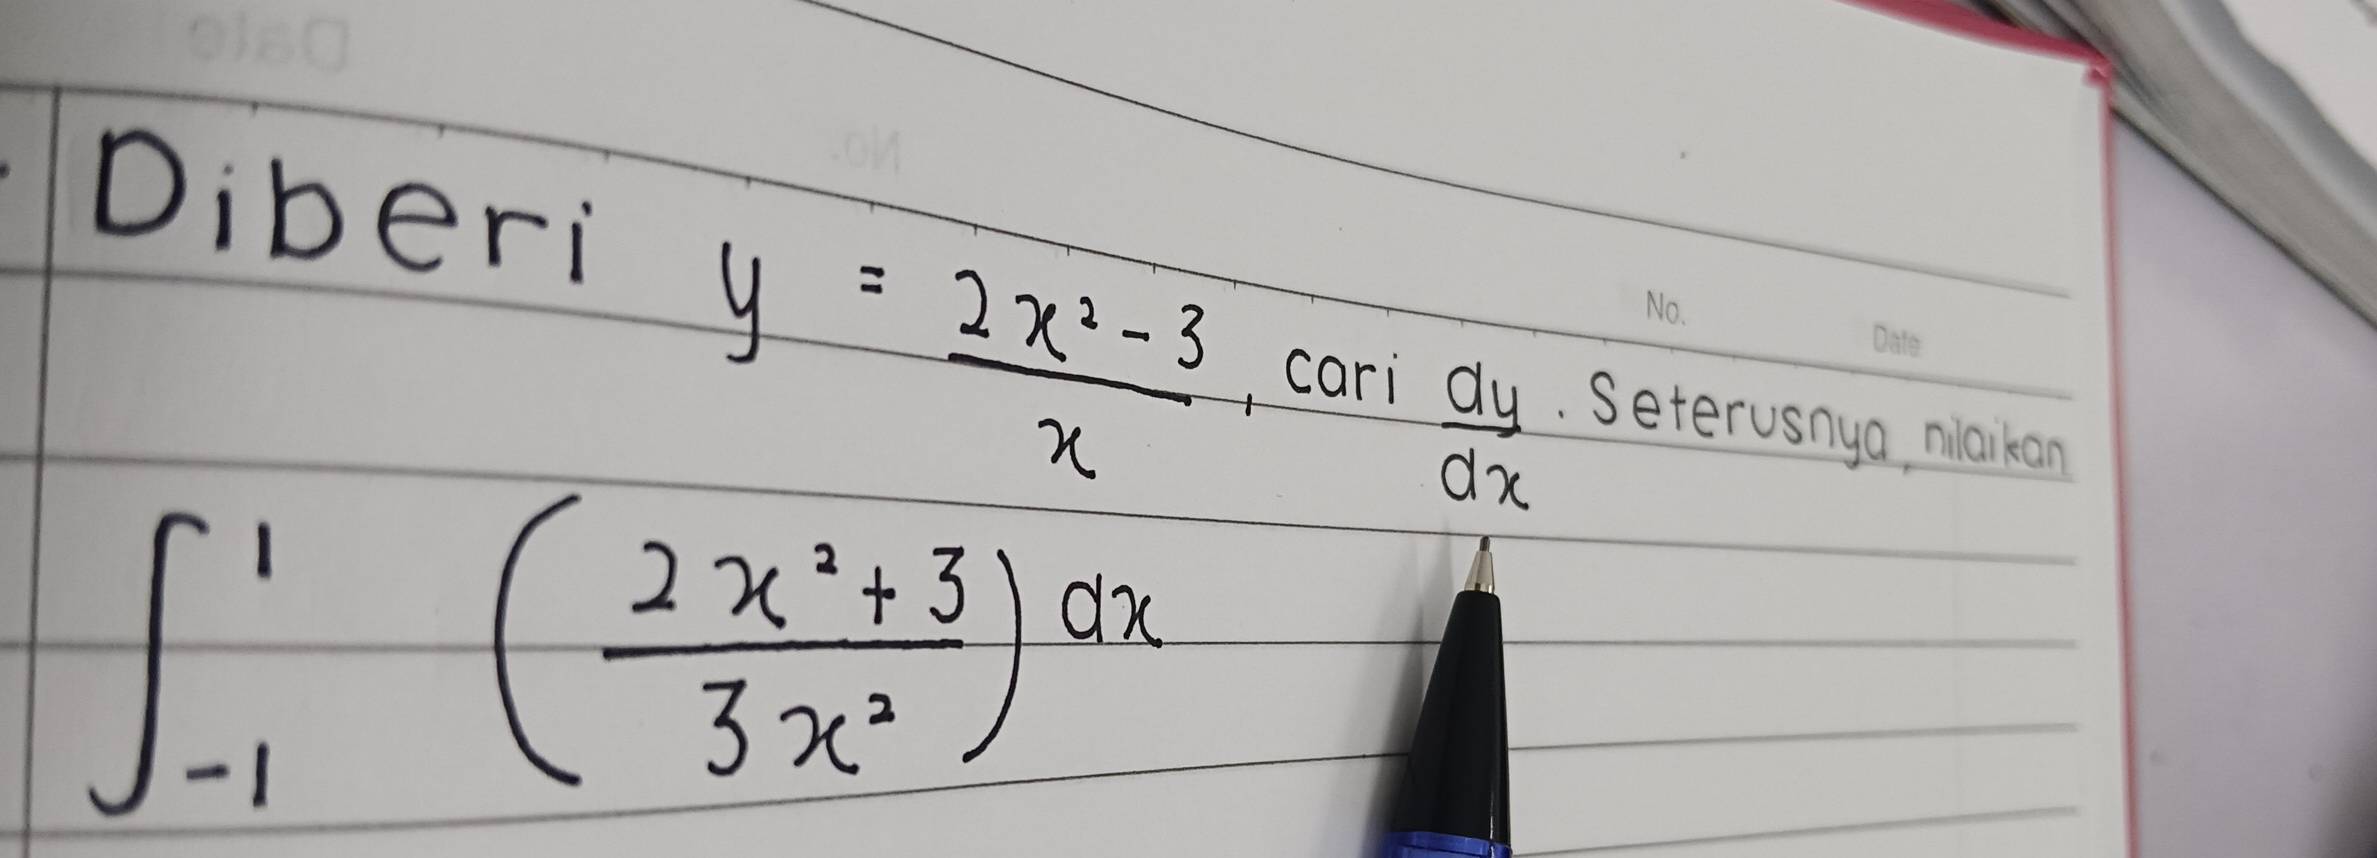 Date
No.
No. Date
Diberi y = 2x² - 3 / x, cari dy/dx. Seterusnya, nilaikan
∫₋₁¹ (2x² + 3 / 3x²) dx